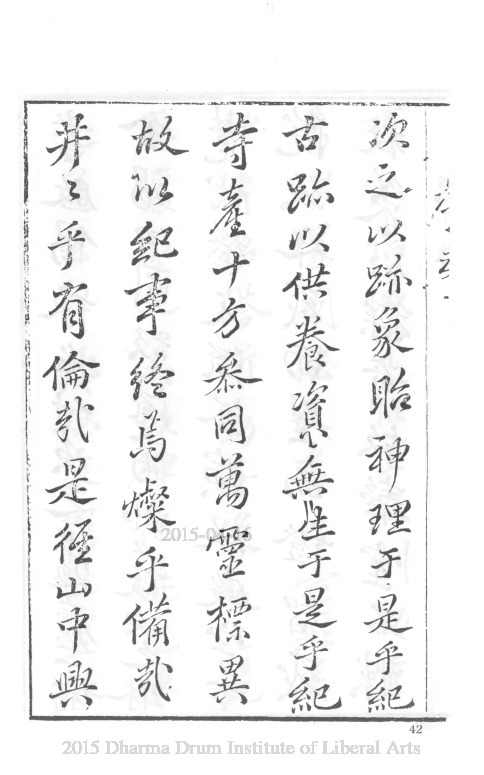 次之以跡象貽神理于是乎紀
古跡以供養資無生于是乎紀
寺產十方叅同萬靈標異
故以紀事終焉燦乎備哉
井〻乎有倫哉是徑山中興
42
2015 Dharma Drum Institute of Liberal Arts